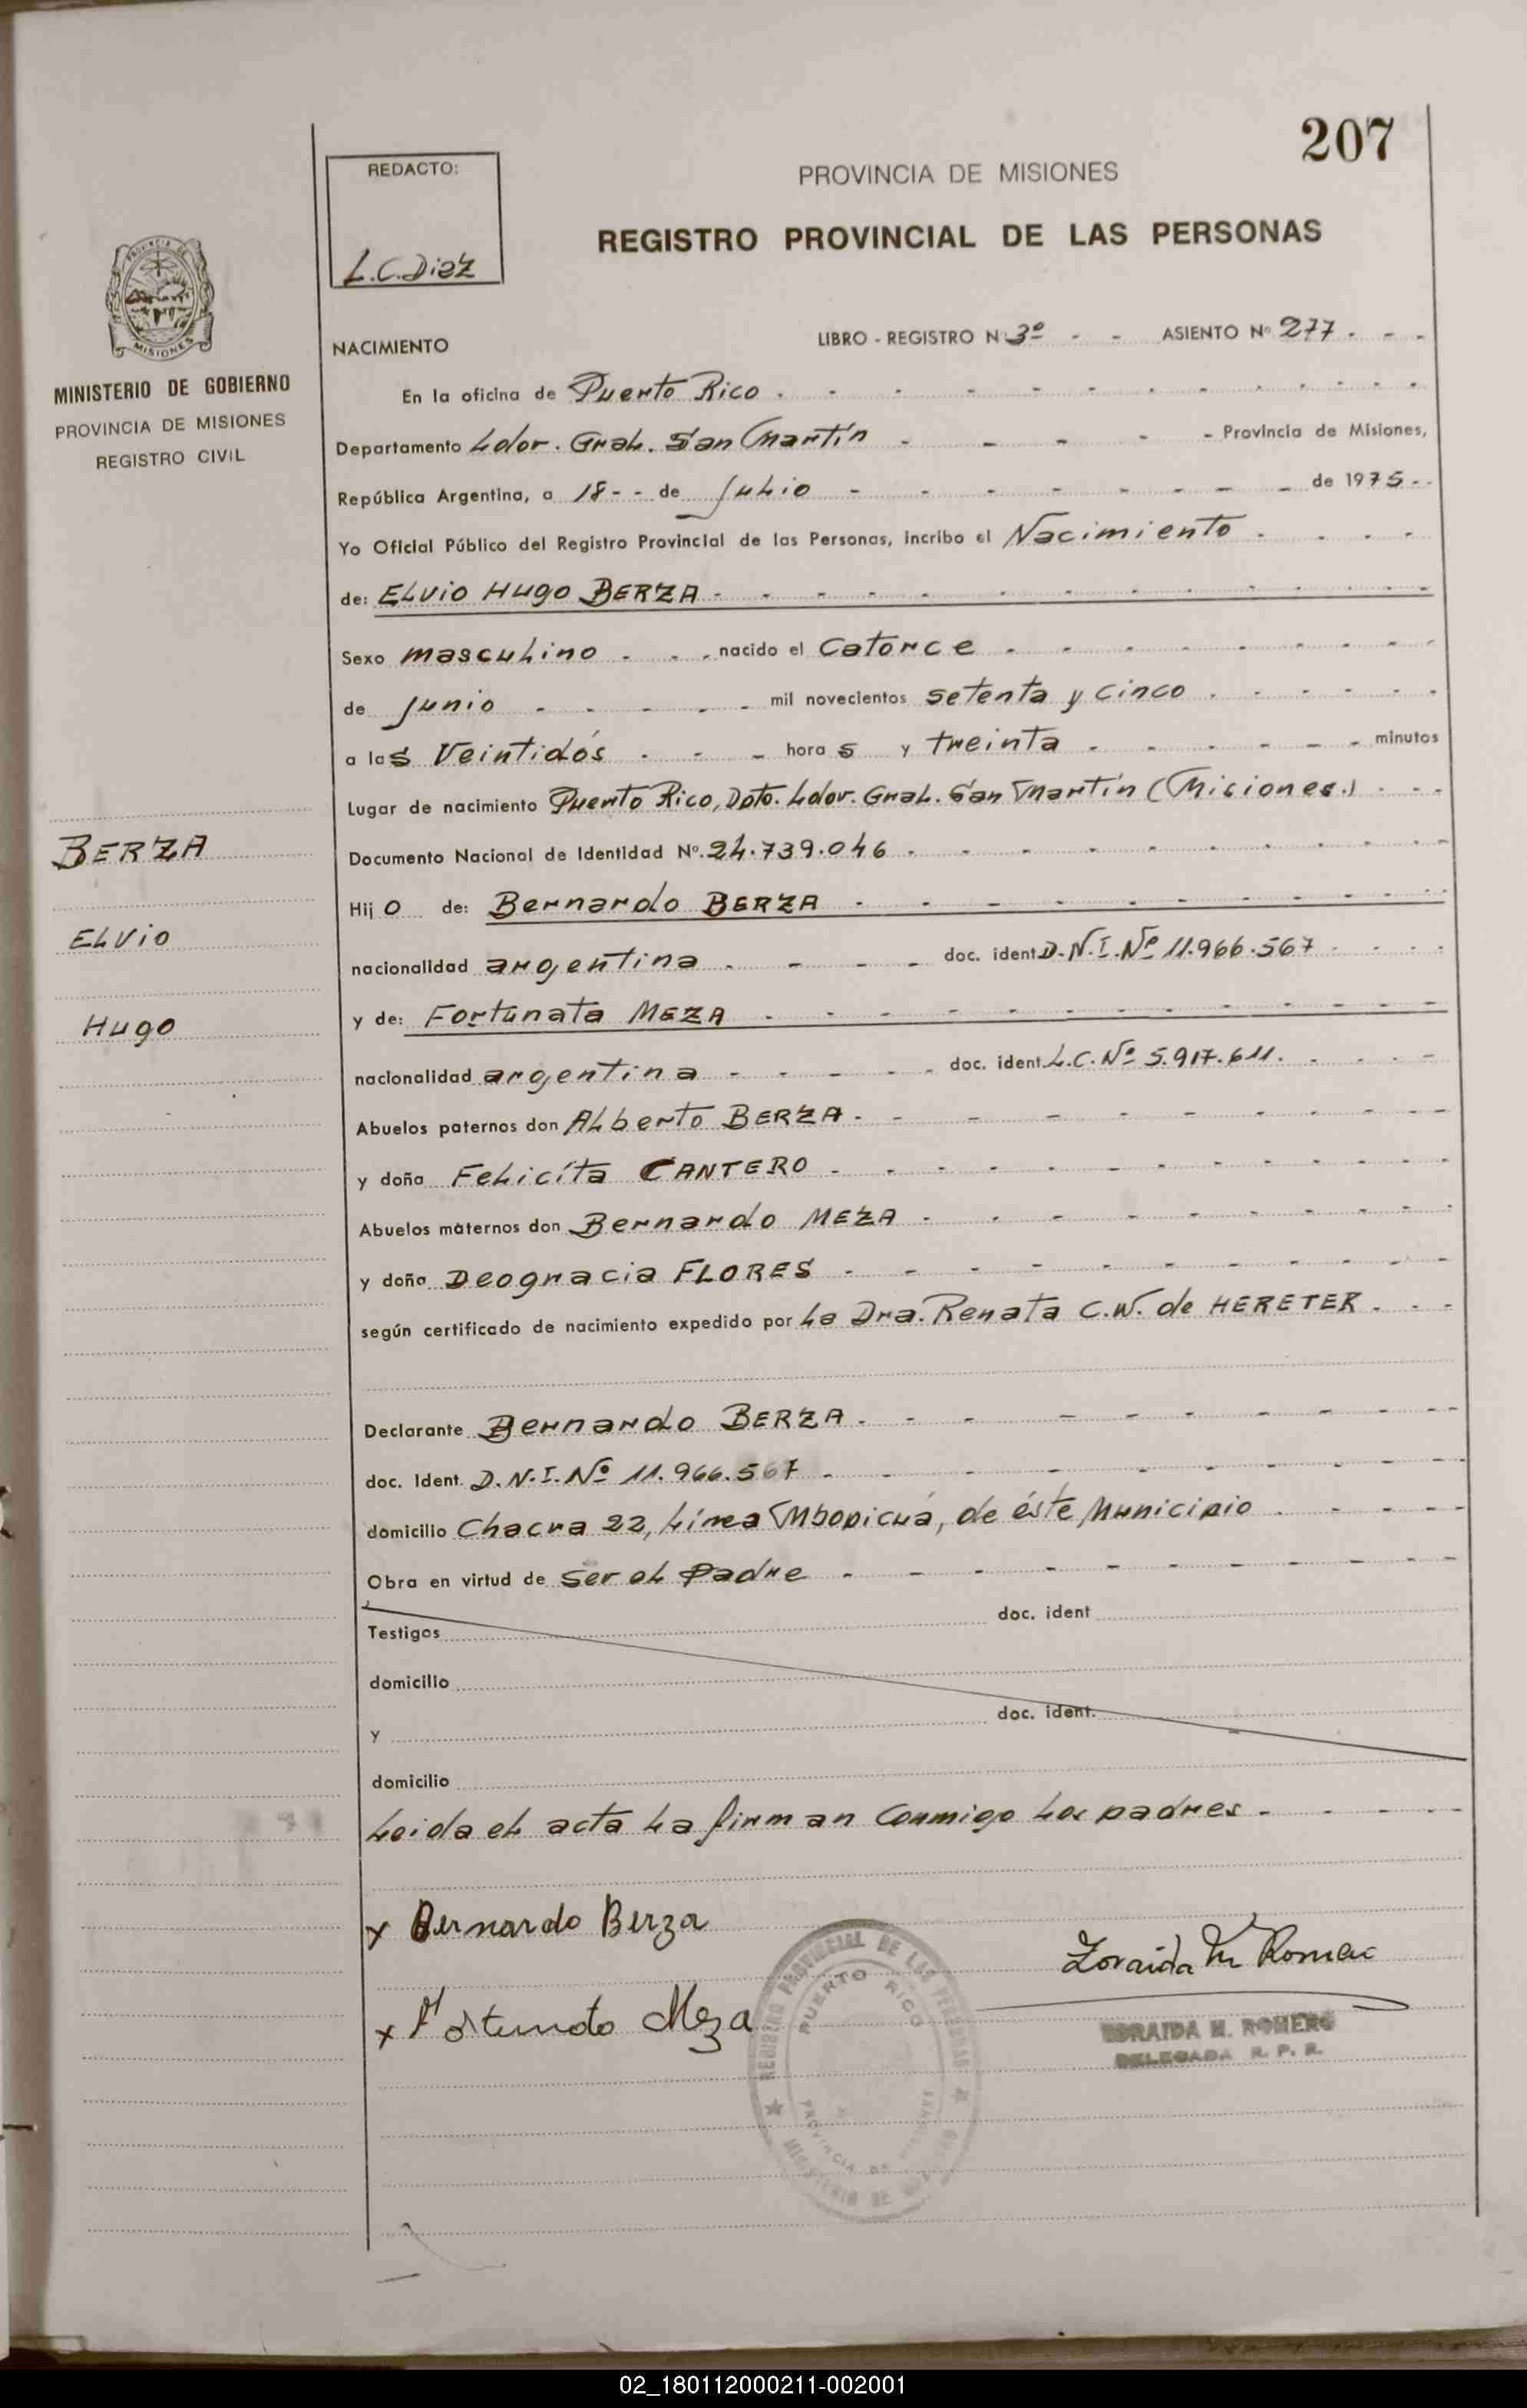 207
REDACTO:
L.C.Diaz
PROVINCIA DE MISIONES
REGISTRO PROVINCIAL DE LAS PERSONAS
MINISTERIO DE GOBIERNO
PROVINCIA DE MISIONES
REGISTRO CIVIL
BERZA
ELVIO
HUGO
NACIMIENTO LIBRO - REGISTRO N 3º - - ASIENTO Nº 277 . - - -
En la oficina de Puerto Rico
Departamento Ldor. Gral. San Martín - Provincia de Misiones,
República Argentina, a 18 - - de Julio - de 1975 - -
Yo Oficial Público del Registro Provincial de las Personas, incribo el Nacimiento
de: ELVIO HUGO BERZA
Sexo masculino - - - nacido el Catorce
de Junio - mil novecientos setenta y cinco
a las Veintidós - - - horas y treinta - minutos
Lugar de nacimiento Puerto Rico, Dpto. Ldor. Gral. San Martín (Misiones.)
Documento Nacional de Identidad Nº. 24.739.046
Hijo de: Bernardo BERZA
nacionalidad argentina - doc. ident D.N.I. Nº 11.966.567
y de: Fortunata MEZA
nacionalidad argentina - doc. ident L.C. Nº 5.917.611.
Abuelos paternos don Alberto BERZA
y doña Felicíta CANTERO
Abuelos maternos don Bernardo MEZA
y doña Deogracia FLORES
según certificado de nacimiento expedido por La Dra. Renata C.W. de HERETER
Declarante Bernardo BERZA
doc. Ident. D.N.I. Nº 11.966.567
domicilio Chacra 22, Línea Mbopicuá, de éste Municipio
Obra en virtud de ser el Padre
Testigos doc. ident
domicilio
y doc. ident.
domicilio
Leida el acta la firman conmigo los padres
x Bernardo Berza
x Fortunata Meza
Zoraida M Romero
ZORAIDA M. ROMERO
DELEGADA R. P. P.
REGISTRO PROVINCIAL DE LAS PERSONAS
PUERTO RICO
PROVINCIA DE MISIONES
02_180112000211-002001